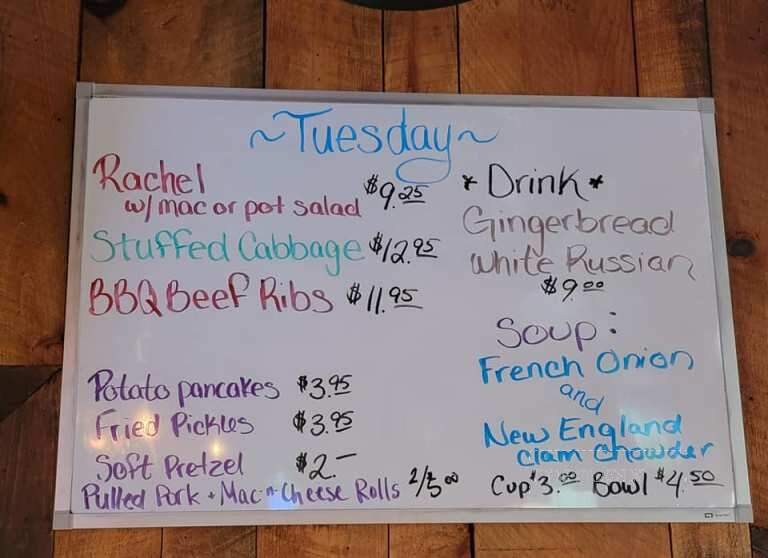 ~Tuesday~
Rachel $9.25
w/ mac or pot salad
Stuffed Cabbage $12.95
BBQ Beef Ribs $11.95
Potato pancakes $3.95
Fried Pickles $3.95
Soft Pretzel $2.—
Pulled Pork + Mac-n-Cheese Rolls 2/5.00
*Drink*
Gingerbread
White Russian
$9.00
Soup:
French Onion
and
New England
Clam Chowder
Cup $3.00 Bowl $4.50